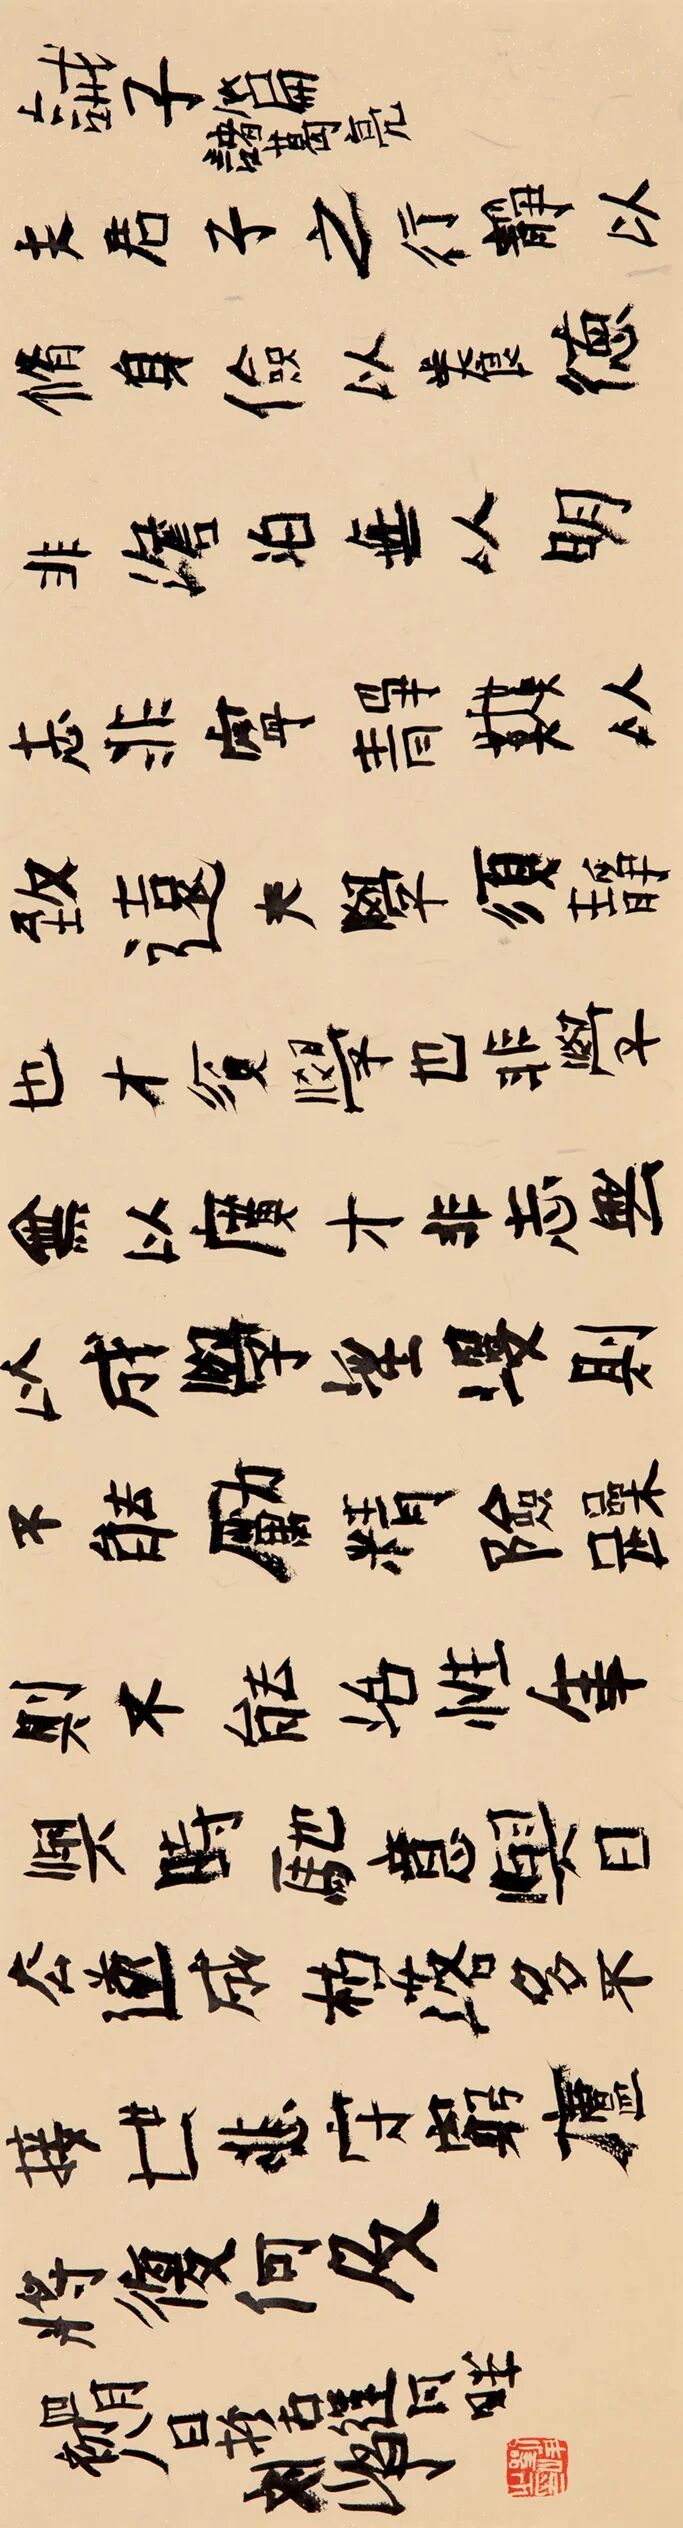 誡子篇
諸葛亮
夫君子之行靜以
脩身儉以養德
非澹泊無以明
志非寧靜無以
致遠夫學須靜
也才須學也非學
無以廣才非志無
以成學淫漫則
不能勵精險躁
則不能治性年
與時馳意與日
去遂成枯落多不
接世悲守窮廬
將復何及
月日於古運河畔